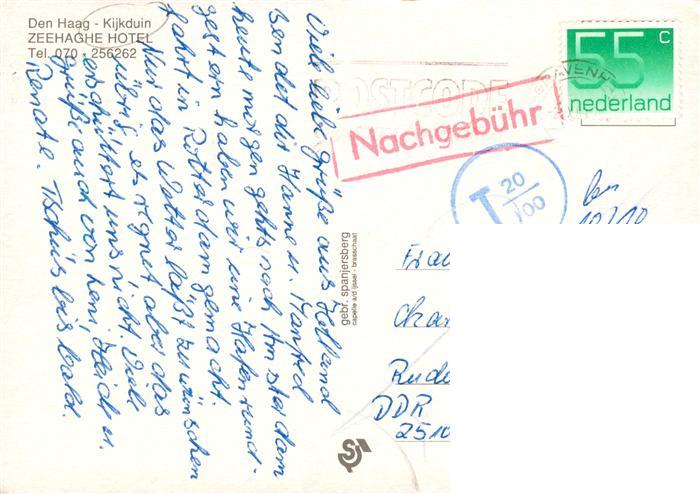 Den Haag - Kijkduin
ZEEHAGHE HOTEL
Tel. 070 - 256262
Viele liebe Grüße aus Holland
sendet dir Hanne u. Manfred
heute morgen gehts nach Amsterdam
gestern haben wir eine Hafenrund-
fahrt in Rotterdam gemacht.
Nur das Wetter läßt zu wünschen
übrig es regnet aber das
erschüttert uns nicht. Viele
grüße auch von Leni, Heidi u.
Renate. Tschüs bis bald.
gebr. spanjersberg
capelle a/d ijssel - brasschaat
POSTCODE
Nachgebühr
55 c
nederland
T 20/100
Frau
Rude
DDR
2510